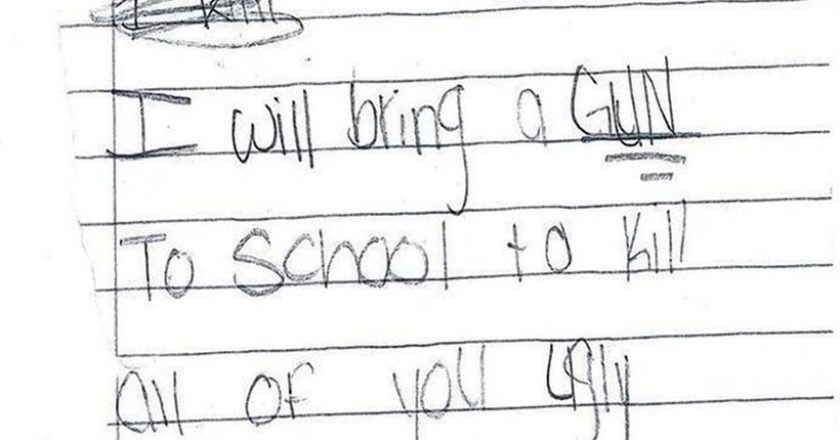 I kill
I will bring a GUN
To School to Kill
All of you Ugly